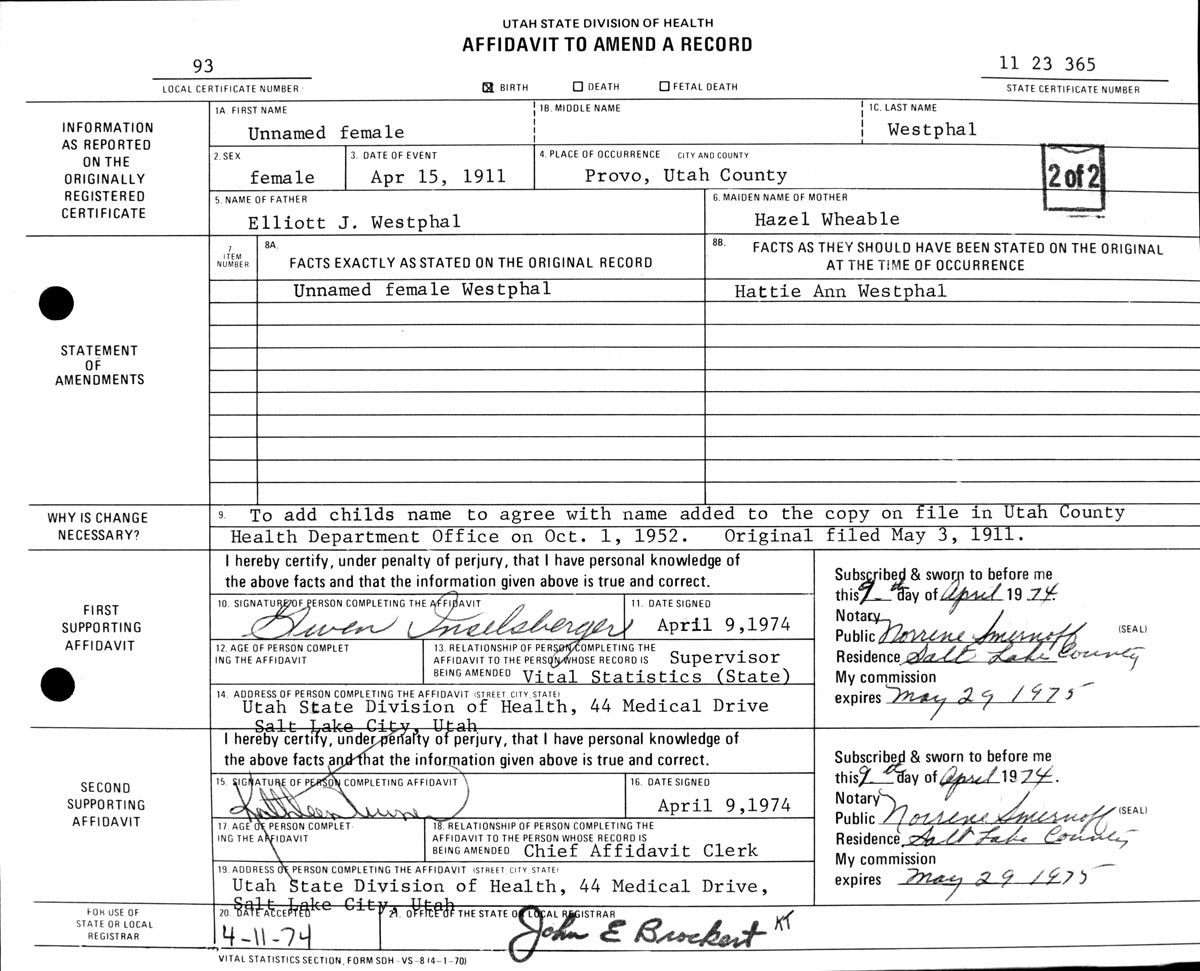 UTAH STATE DIVISION OF HEALTH
AFFIDAVIT TO AMEND A RECORD
93
LOCAL CERTIFICATE NUMBER
☒ BIRTH ☐ DEATH ☐ FETAL DEATH
11 23 365
STATE CERTIFICATE NUMBER
INFORMATION
AS REPORTED
ON THE
ORIGINALLY
REGISTERED
CERTIFICATE
1A. FIRST NAME
Unnamed female
1B. MIDDLE NAME
1C. LAST NAME
Westphal
2. SEX
female
3. DATE OF EVENT
Apr 15, 1911
4. PLACE OF OCCURRENCE CITY AND COUNTY
Provo, Utah County
2 of 2
5. NAME OF FATHER
Elliott J. Westphal
6. MAIDEN NAME OF MOTHER
Hazel Wheable
STATEMENT
OF
AMENDMENTS
7
ITEM
NUMBER
8A.
FACTS EXACTLY AS STATED ON THE ORIGINAL RECORD
8B. FACTS AS THEY SHOULD HAVE BEEN STATED ON THE ORIGINAL
AT THE TIME OF OCCURRENCE
Unnamed female Westphal
Hattie Ann Westphal
WHY IS CHANGE
NECESSARY?
9. To add childs name to agree with name added to the copy on file in Utah County
Health Department Office on Oct. 1, 1952. Original filed May 3, 1911.
FIRST
SUPPORTING
AFFIDAVIT
I hereby certify, under penalty of perjury, that I have personal knowledge of
the above facts and that the information given above is true and correct.
10. SIGNATURE OF PERSON COMPLETING THE AFFIDAVIT
Gwen Inselsberger
11. DATE SIGNED
April 9,1974
12. AGE OF PERSON COMPLET
ING THE AFFIDAVIT
13. RELATIONSHIP OF PERSON COMPLETING THE
AFFIDAVIT TO THE PERSON WHOSE RECORD IS
BEING AMENDED
Supervisor
Vital Statistics (State)
14. ADDRESS OF PERSON COMPLETING THE AFFIDAVIT (STREET, CITY, STATE)
Utah State Division of Health, 44 Medical Drive
Salt Lake City, Utah
Subscribed & sworn to before me
this 9th day of April 1974.
Notary
Public Norrene Smernoff (SEAL)
Residence Salt Lake County
My commission
expires May 29 1975
SECOND
SUPPORTING
AFFIDAVIT
I hereby certify, under penalty of perjury, that I have personal knowledge of
the above facts and that the information given above is true and correct.
15. SIGNATURE OF PERSON COMPLETING AFFIDAVIT
Kathleen
16. DATE SIGNED
April 9,1974
17. AGE OF PERSON COMPLET
ING THE AFFIDAVIT
18. RELATIONSHIP OF PERSON COMPLETING THE
AFFIDAVIT TO THE PERSON WHOSE RECORD IS
BEING AMENDED Chief Affidavit Clerk
19. ADDRESS OF PERSON COMPLETING THE AFFIDAVIT (STREET, CITY, STATE)
Utah State Division of Health, 44 Medical Drive,
Salt Lake City, Utah
Subscribed & sworn to before me
this 9th day of April 1974.
Notary
Public Norrene Smernoff (SEAL)
Residence Salt Lake County
My commission
expires May 29 1975
FOR USE OF
STATE OR LOCAL
REGISTRAR
20. DATE ACCEPTED
4-11-74
21. OFFICE OF THE STATE OR LOCAL REGISTRAR
John E Brockert KT
VITAL STATISTICS SECTION, FORM SDH-VS-8 (4-1-70)